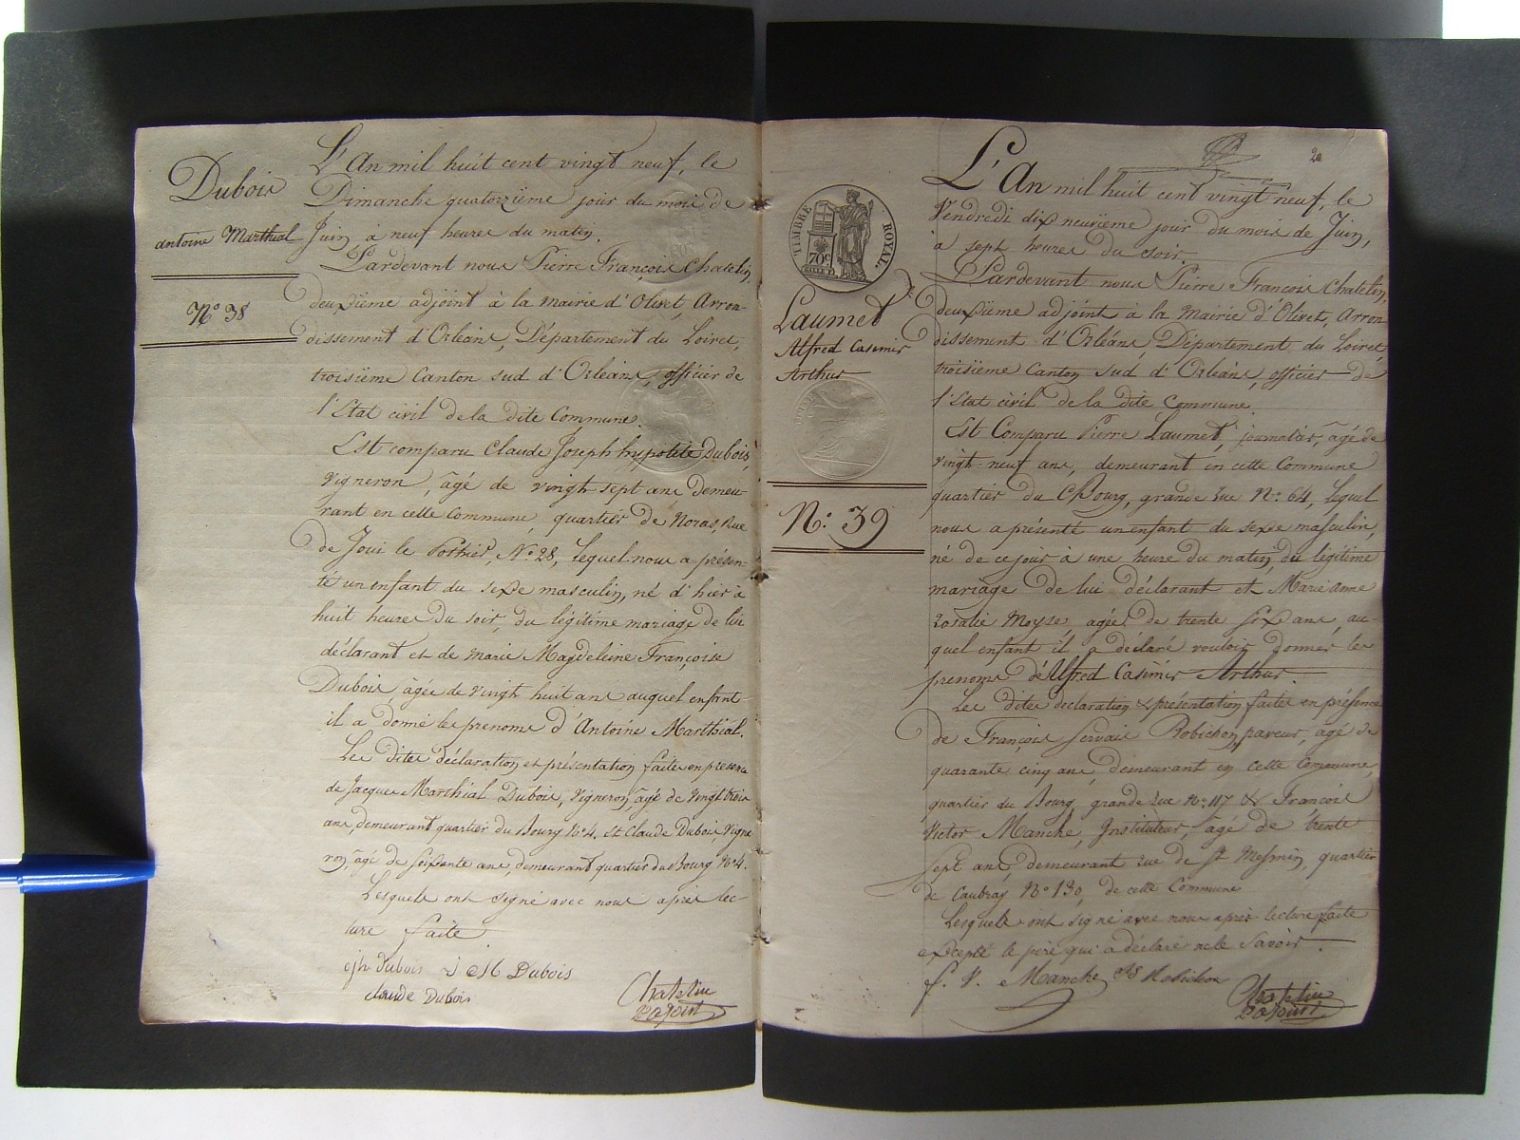 Dubois
antoine Marthial
N° 38
L'An mil huit cent vingt neuf, le
Dimanche quatorzième jour du mois de
Juin, à neuf heures du matin.
Pardevant nous Pierre François Chatelin,
deuxième adjoint à la mairie d'Olivet, Arron-
dissement d'Orléans, Département du Loiret,
troisième Canton sud d'Orléans, officier de
l'Etat civil de la dite Commune.
Est comparu Claude Joseph hypolite Dubois,
vigneron, âgé de vingt-sept ans demeu-
rant en cette commune, quartier de Noras, Rue
de Joui le Pothier, N° 28, lequel nous a présen-
té un enfant du sexe masculin, né d'hier à
huit heures du soir, du légitime mariage de lui
déclarant et de marie Magdeleine Françoise
Dubois âgée de vingt huit ans auquel enfant
il a donné les prenoms d'Antoine Marthial.
Les dites déclaration et présentation faites en presence
de Jacques Marthial Dubois, vigneron, âgé de vingt trois
ans, demeurant quartier du Bourg N° 4, et Claude Dubois, vigne
ron, âgé de soixante ans, demeurant quartier du Bourg N° 4.
Lesquels ont signé avec nous après lec-
ture faite.
cjh Dubois j M Dubois
claude Dubois
Chatelin
adjoint
20
TIMBRE ROYAL
70c
Laumet
Alfred Casimir
Arthur
N° 39
L'An mil huit cent vingt neuf, le
Vendredi dix neuvième jour du mois de Juin,
à sept heures du soir.
Pardevant nous Pierre François Chatelin,
deuxième adjoint à la Mairie d'Olivet, Arron
dissement d'Orléans, Département du Loiret,
troisième Canton Sud d'Orléans, officier de
l'Etat civil de la dite Commune.
Est Comparu Pierre Laumet, journalier, âgé de
vingt-neuf ans, demeurant en cette Commune
quartier du Bourg, grande rue N° 64, lequel
nous a présenté un enfant du sexe masculin,
né de ce jour à une heure du matin du légitime
mariage de lui déclarant et Marie anne
rosalie Moyse agée de trente six ans, au-
quel enfant il a déclaré vouloir donner les
prenoms d'Alfred Casimir Arthur.
Les dites declaration & présentation faites en présence
de François Servais Robichon paveur, âgé de
quarante cinq ans, demeurant en cette Commune,
quartier du Bourg, grande rue N° 117 & François
Victor Manche, Instituteur âgé de trente
sept ans, demeurant rue de St Mesmin, quartier
de Caubray N° 130, de cette Commune
Lesquels ont signé avec nous après lecture faite
excepté le père qui a déclaré ne le savoir.
f. V. Manche Robichon
Chatelin
adjoint